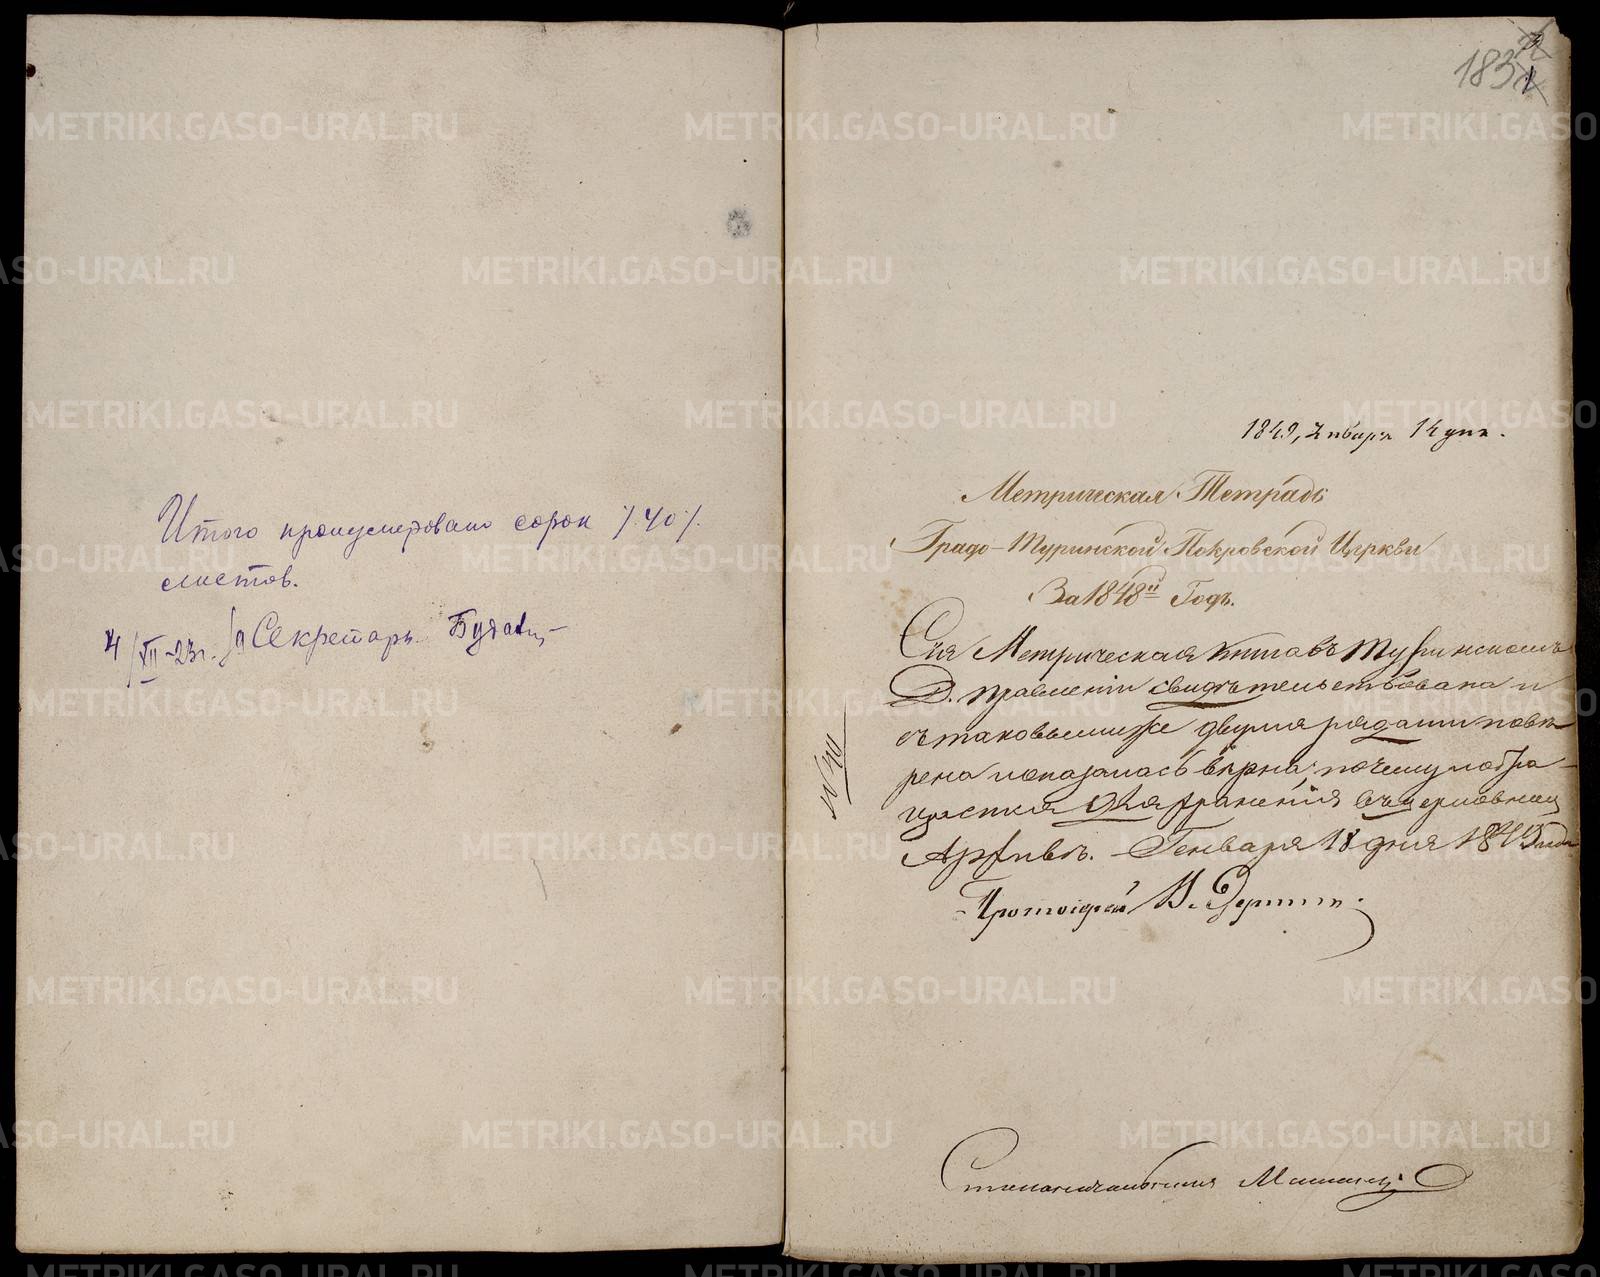 Итого пронумеровано сорок /.40/.
листов.
4/XII-23г. Секретарь
183
1849, Января 14 дня.
Метрическая Тетрадь
Градо-Туринской Покровской Церкви
За 1848й Годъ.
Сия Метрическая книга въ Туринскомъ
Д. правленіи свидѣтельствована и
съ таковымиже двумя рядами повѣ
рена и показалась вѣрна; почему и обра
щается для храненія въ церковный
Архивъ. Генваря 18 дня 1849 года
№ 40
Протоіерей В.
Столоначальникъ
METRIKI.GASO-URAL.RU